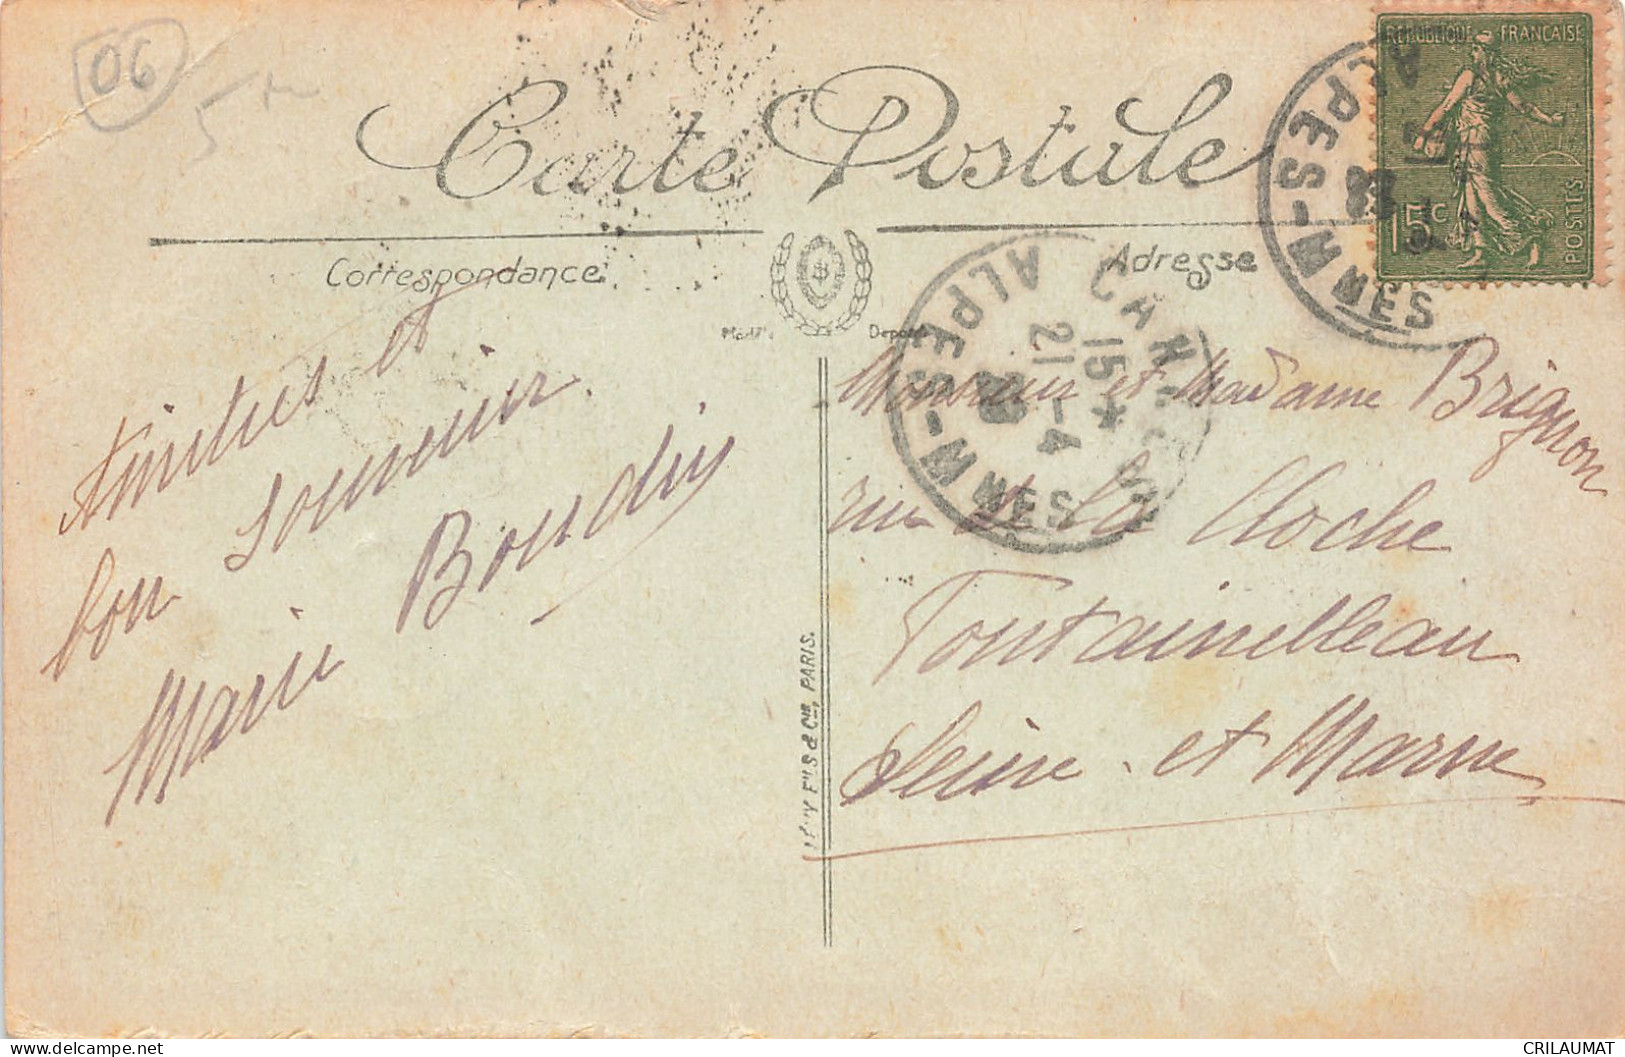 06
Carte Postale
RÉPUBLIQUE FRANÇAISE
15c
POSTES
Correspondance
Adresse
Modèle Déposé
Amitiés et
bon souvenir.
Marie Boudin
CANNES
15 *
21 -4
ALPES-MMES
ALPES-MMES
Monsieur et Madame Brignon
rue de la Cloche
Fontainebleau
Seine-et Marne
LÉVY FILS & CIE, PARIS.
CRILAUMAT